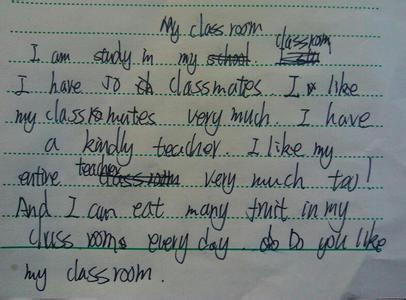 My classroom
I am study in my classroom.
I have 50 classmates. I like
my classmates very much. I have
a kindly teacher. I like my
entire teacher very much too!
And I can eat many fruit in my
class rooms every day. Do you like
my classroom.